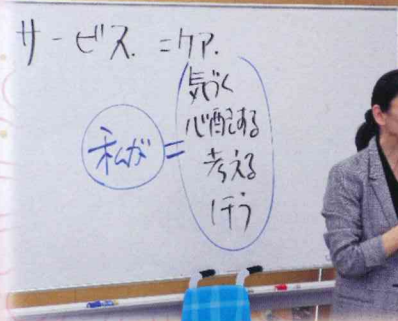 サービス.=ケア.
気づく
心配する
私が=考える
行う